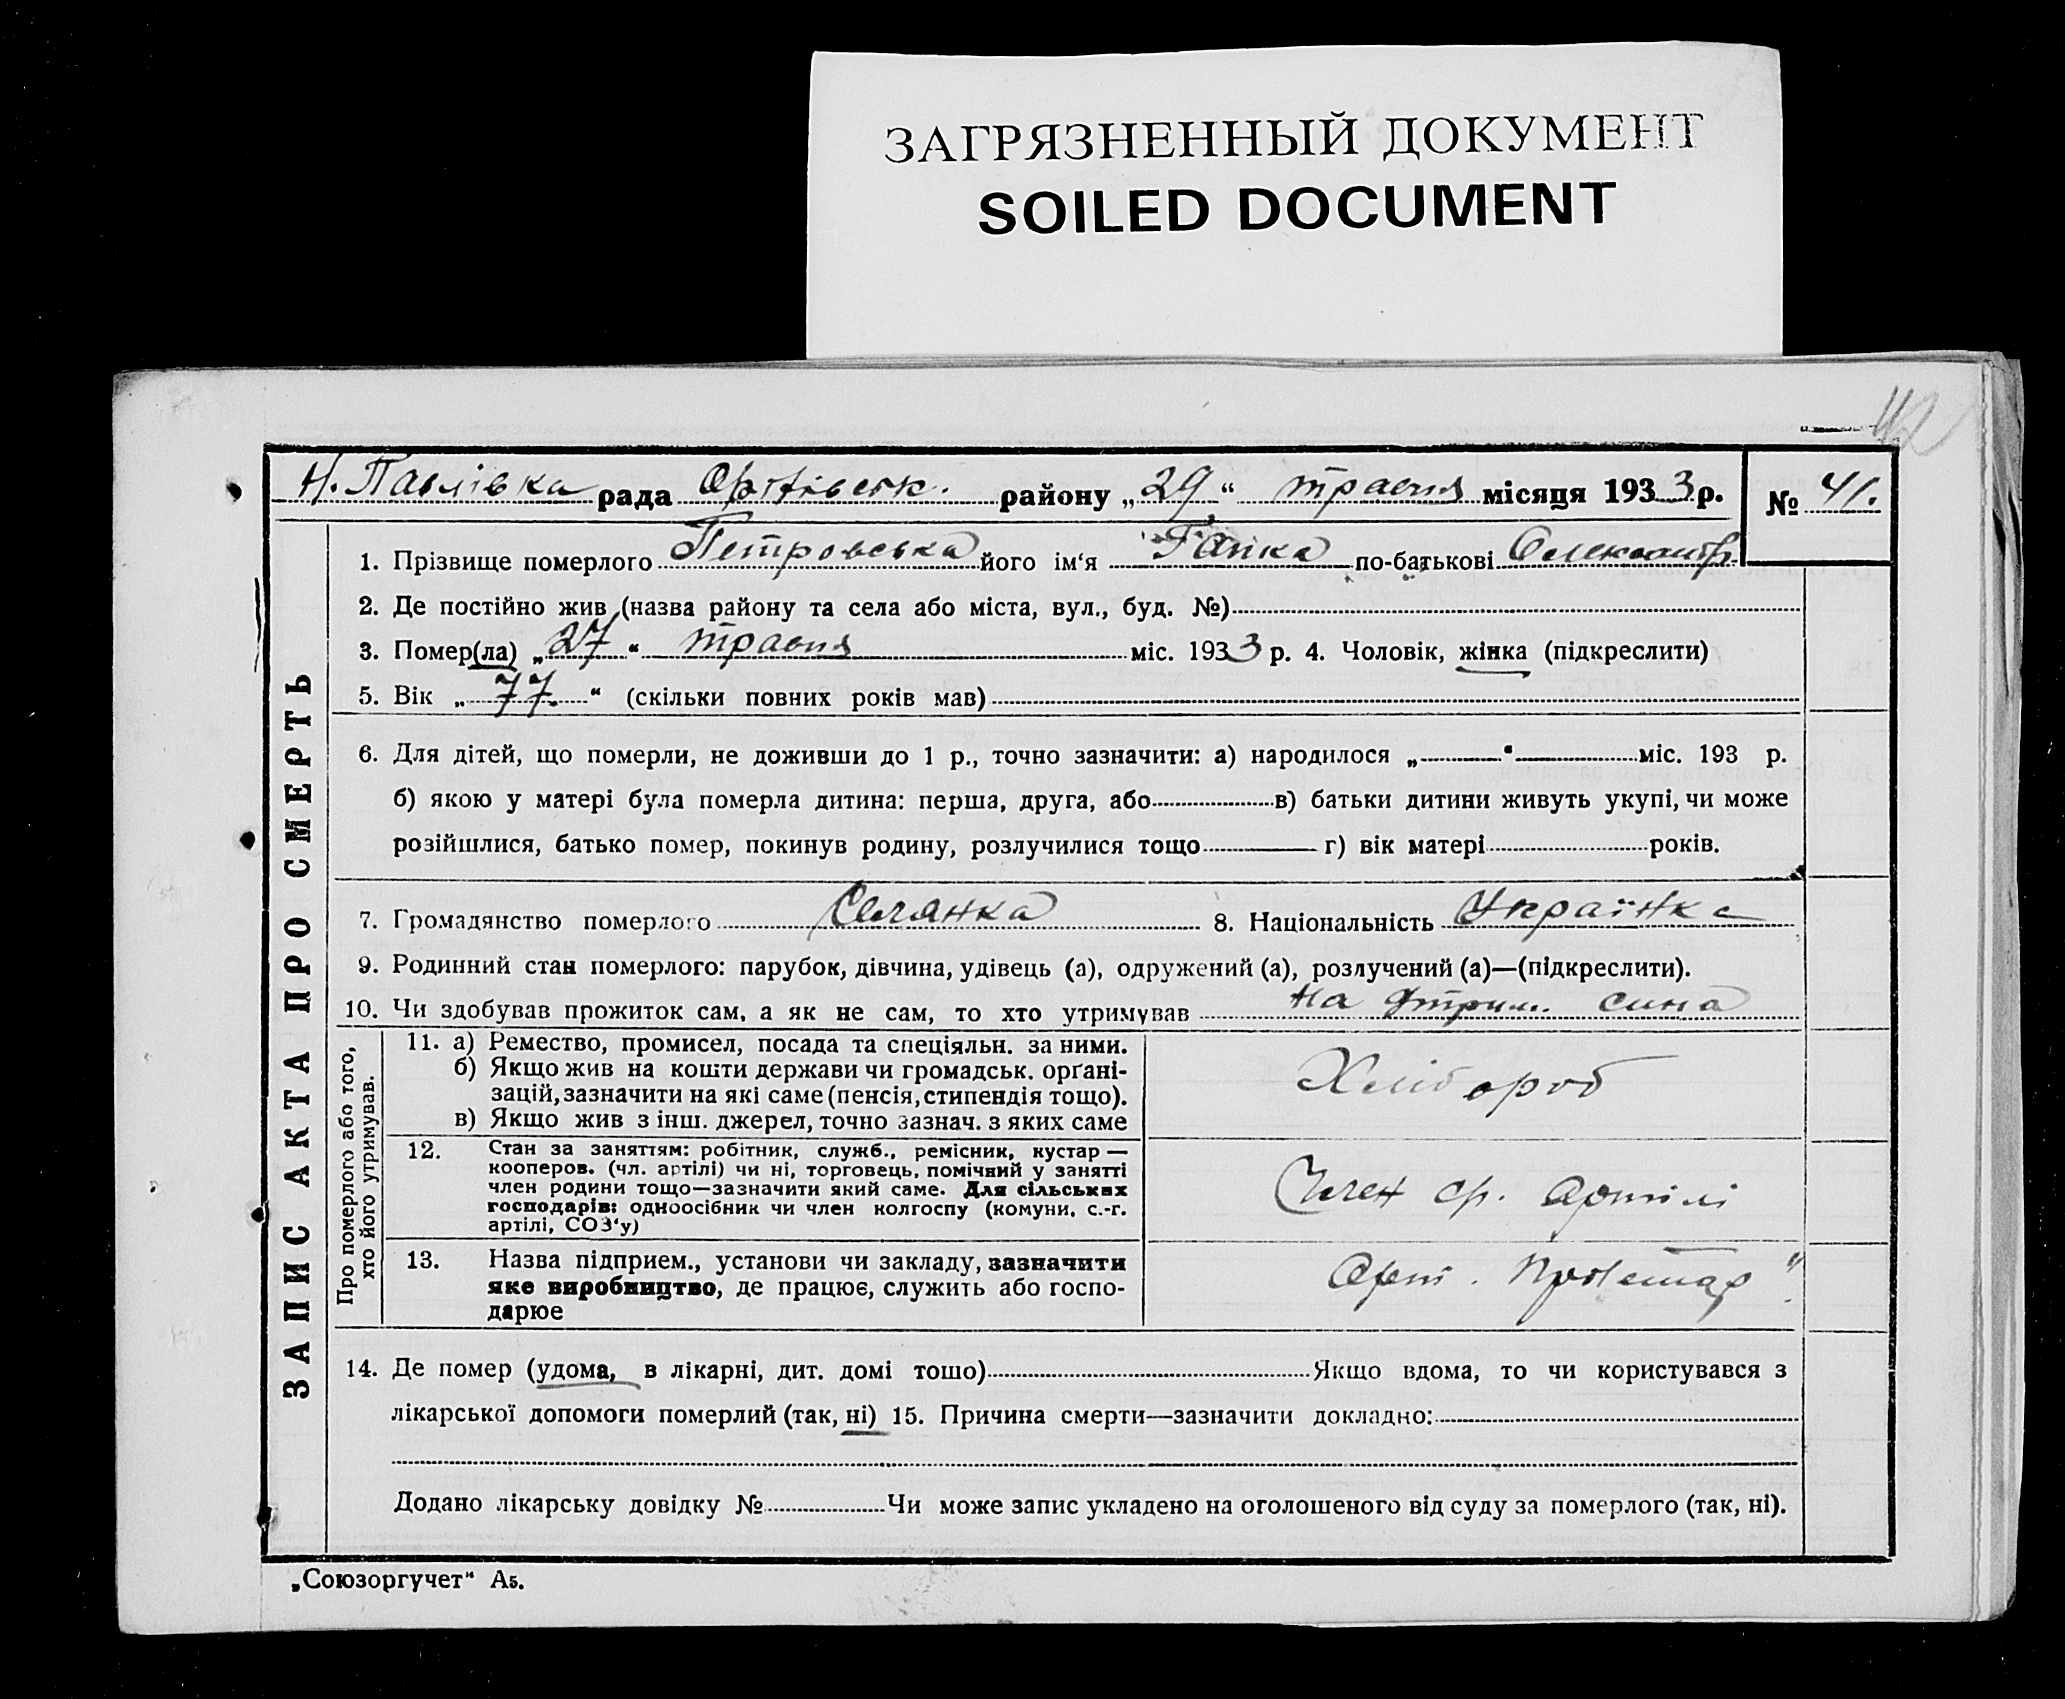 ЗАГРЯЗНЕННЫЙ ДОКУМЕНТ
SOILED DOCUMENT
Н. Павлівка рада району „29“ травня місяця 1933 р. № 41.
ЗАПИС АКТА ПРО СМЕРТЬ
1. Прізвище померлого Петровська його ім‘я Гапка по-батькові Олександр.
2. Де постійно жив (назва району та села або міста, вул., буд. №)
3. Помер(ла) „27“ травня міс. 1933 р. 4. Чоловік, жінка (підкреслити)
5. Вік „77.“ (скільки повних років мав)
6. Для дітей, що померли, не доживши до 1 р., точно зазначити: а) народилося „ “ міс. 193 р.
б) якою у матері була померла дитина: перша, друга, або в) батьки дитини живуть укупі, чи може
розійшлися, батько помер, покинув родину, розлучилися тощо г) вік матері років.
7. Громадянство померлого Селянка 8. Національність Українка
9. Родинний стан померлого: парубок, дівчина, удівець (а), одружений (а), розлучений (а)—(підкреслити).
10. Чи здобував прожиток сам, а як не сам, то хто утримував на утрим. сина
Про померлого або того,
хто його утримував.
11. а) Ремество, промисел, посада та спеціяльн. за ними.
б) Якщо жив на кошти держави чи громадськ. орґані-
зацій, зазначити на які саме (пенсія, стипендія тощо).
в) Якщо жив з інш. джерел, точно зазнач. з яких саме
Хлібороб
12. Стан за заняттям: робітник, служб., ремісник, кустар —
кооперов. (чл. артілі) чи ні, торговець, помічний у занятті
член родини тощо—зазначити який саме. Для сільських
господарів: одноосібник чи член колгоспу (комуни, с.-г.
артілі, СОЗ‘у)
Член с/г. артілі
13. Назва підприєм., установи чи закладу, зазначити
яке виробництво, де працює, служить або госпо-
дарює
Арт. Пролетар"
14. Де помер (удома, в лікарні, дит. домі тощо) Якщо вдома, то чи користувався з
лікарської допомоги померлий (так, ні) 15. Причина смерти—зазначити докладно:
Додано лікарську довідку № Чи може запис укладено на оголошеного від суду за померлого (так, ні).
„Союзоргучет“ А5.